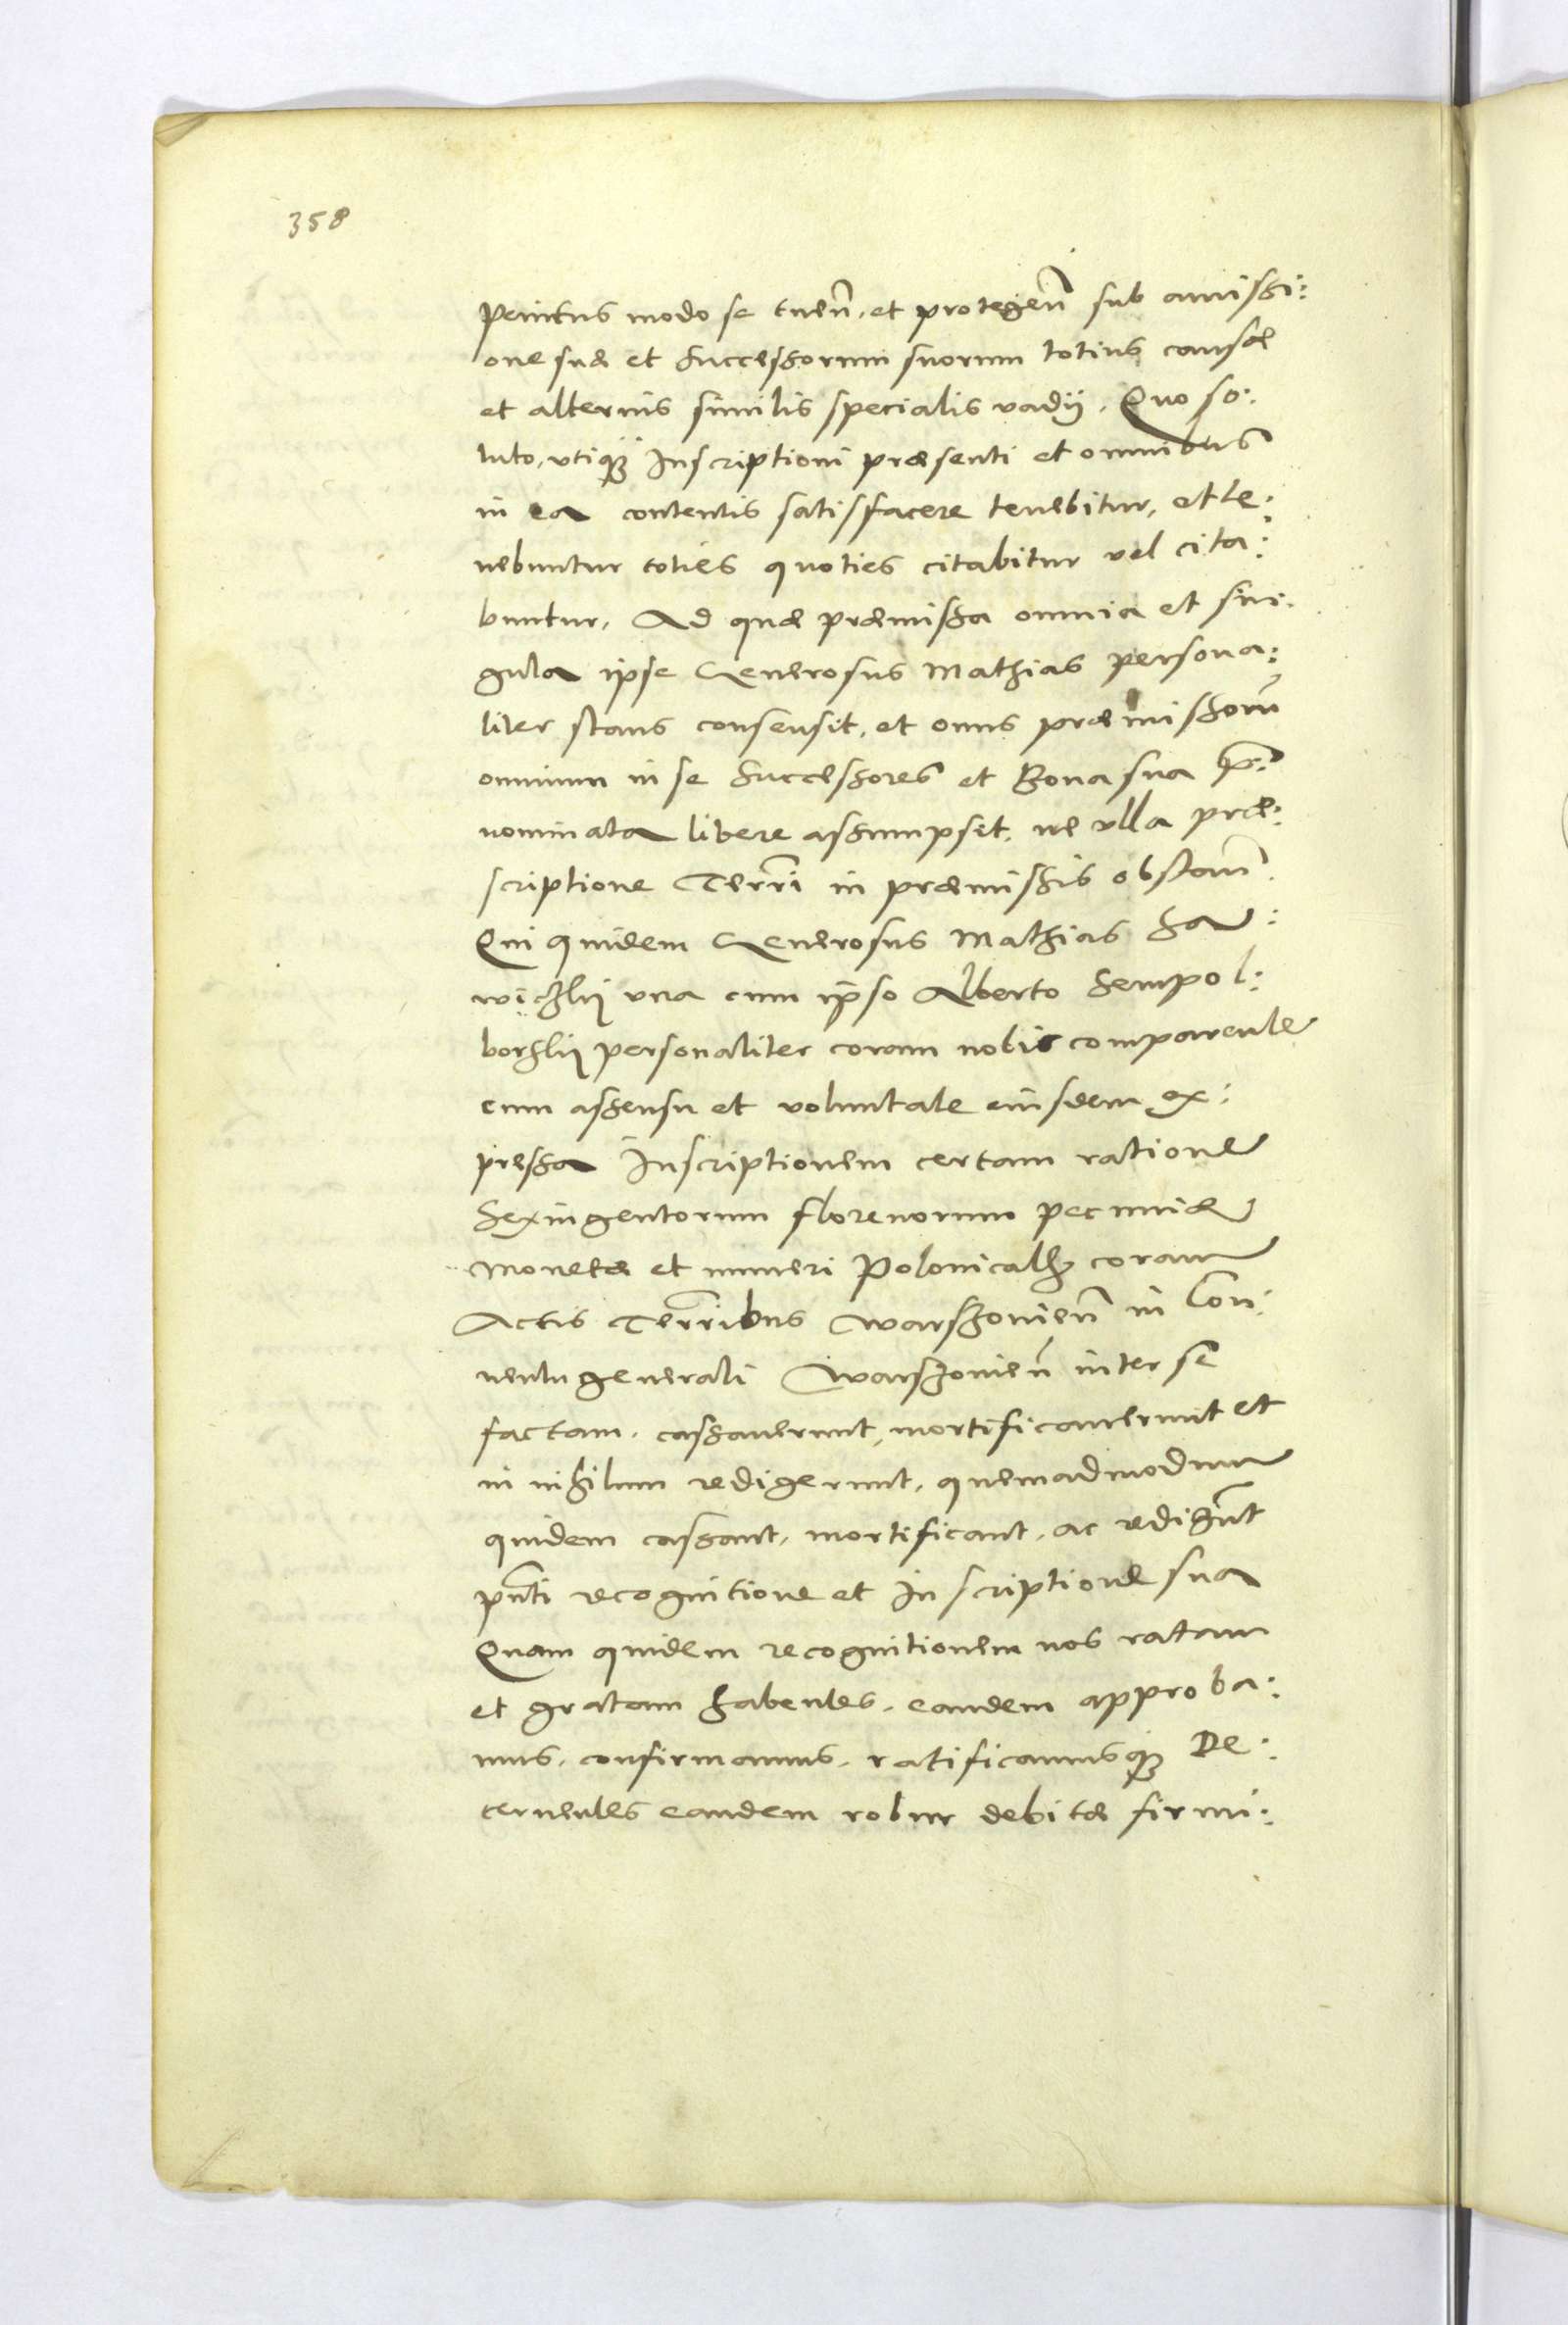 358
penitus modo se tuen̄. et protegen̄ sub amissi:
one sua et successorum suorum totius causæ
et alterius similis specialis vadij. Quo so:
luto, vtiqꝫ Inscriptioni præsenti et omnibus
in ea contentis satisfacere tenebitur, et te:
nebuntur toties quoties citabitur vel cita:
buntur. Ad quæ præmissa omnia et sin:
gula ipse Generosus Mathias persona:
liter stans consensit, et onus præmissorū
omnium in se successores et Bona sua p̄:
nominata libere assumpsit. ne vlla præ:
scriptione Terrī in præmissis obstan̄.
Qui quidem Generosus Mathias Sa
una cum ipso Alberto Sempol:
borskij personaliter coram nobis comparente
cum assensu et voluntate eiusdem ex:
pressa Inscriptionem certam ratione
Sexingentorum florenorum pecuniæ
monetæ et numeri Polonicalꝫ coram
Actis Terrībus Warszouien̄ in Con:
uentu generali Warszouien̄ inter se
factam. cassauerunt, mortificauerunt et
in nihilum redigerunt, quemadmodum
quidem cassant, mortificant, ac redigūt
pn̄ti recognitione et Inscriptione sua
Quam quidem recognitionem nos ratam
et gratam habentes. eandem approba:
mus. confirmamus. ratificamusqꝫ De:
cernentes eandem robur debitæ firmi: